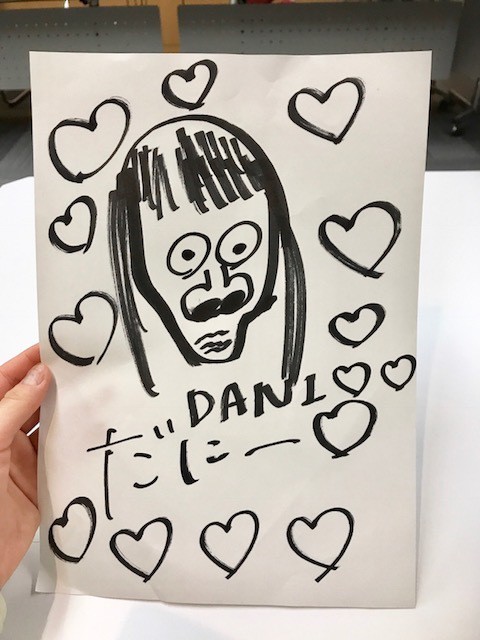 DANI
だにー